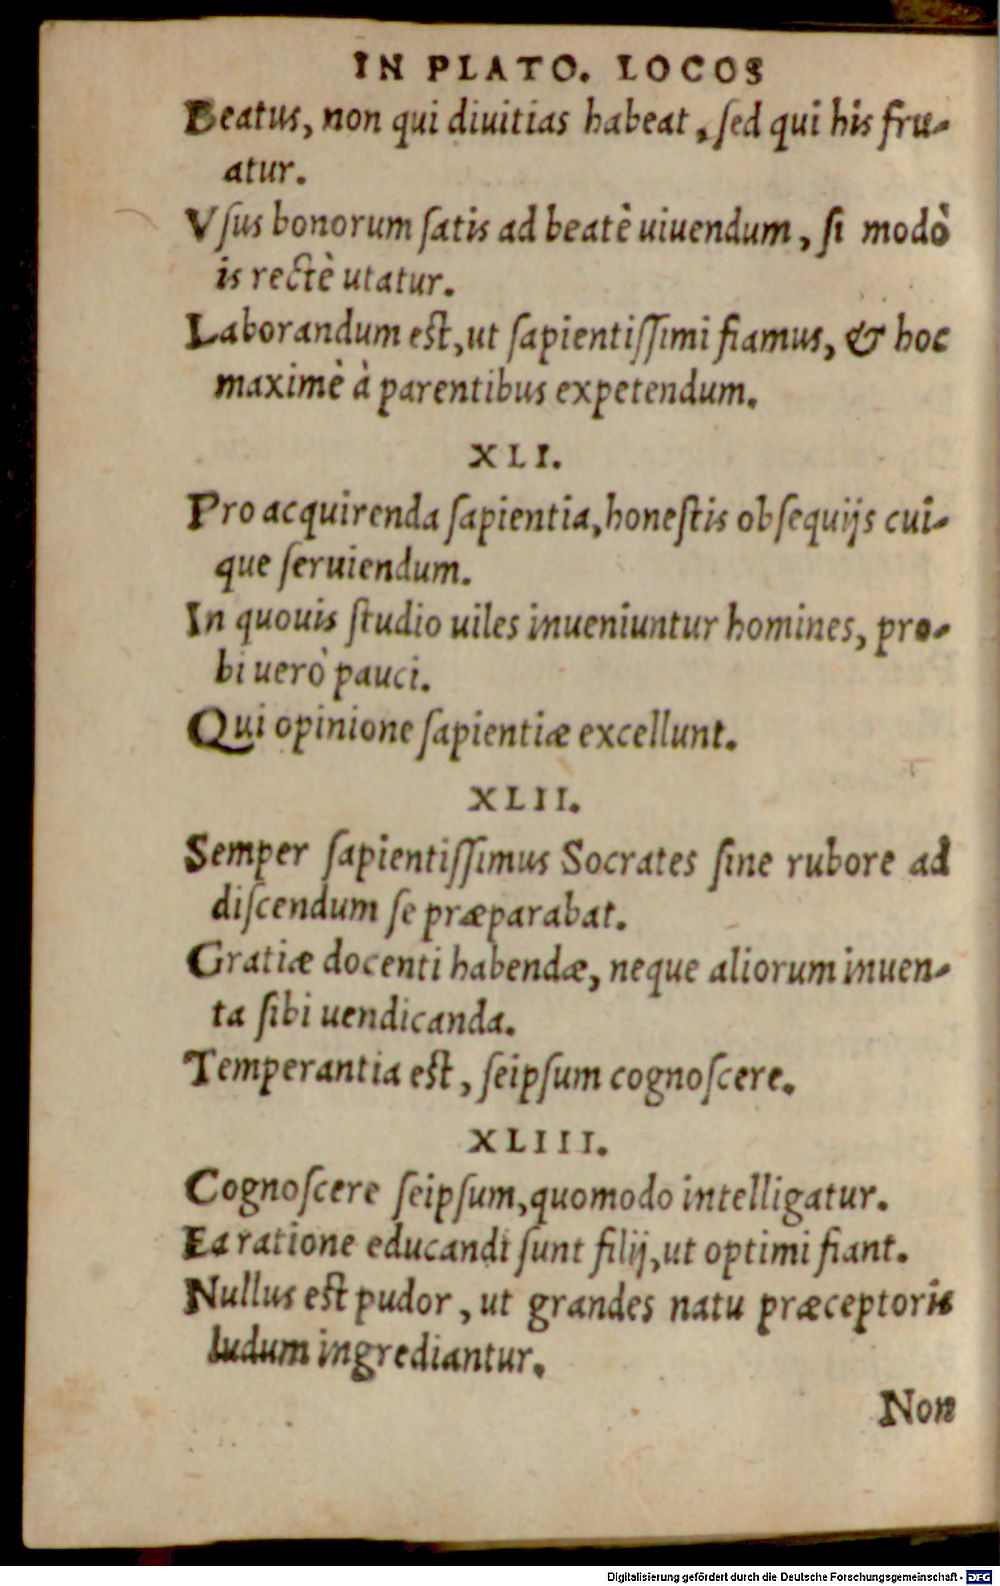 IN PLATO. LOCOS
Beatus, non qui diuitias habeat, ſed qui his fru-
atur.
Vſus bonorum ſatis ad beatè uiuendum, ſi modò
is rectè utatur.
Laborandum eſt, ut ſapientiſſimi fiamus, & hoc
maximè à parentibus expetendum.
XLI.
Pro acquirenda ſapientia, honeſtis obſequijs cui-
que ſeruiendum.
In quouis ſtudio uiles inueniuntur homines, pro-
bi uerò pauci.
Qui opinione ſapientiæ excellunt.
XLII.
Semper ſapientiſſimus Socrates ſine rubore ad
diſcendum ſe præparabat.
Gratiæ docenti habendæ, neque aliorum inuen-
ta ſibi uendicanda.
Temperantia eſt, ſeipſum cognoſcere.
XLIII.
Cognoſcere ſeipſum, quomodo intelligatur.
Ea ratione educandi ſunt filij, ut optimi fiant.
Nullus eſt pudor, ut grandes natu præceptoris
ludum ingrediantur.
Non
Digitalisierung gefördert durch die Deutsche Forschungsgemeinschaft - DFG